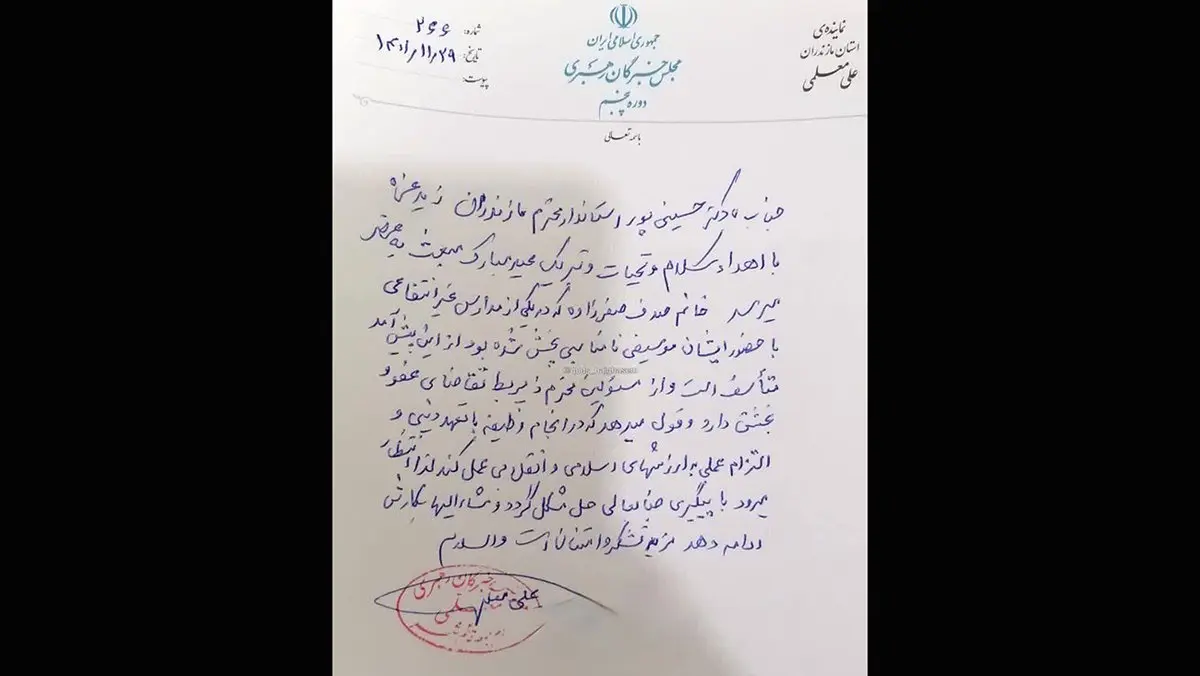 نماینده‌ی
استان مازندران
علی معلمی
جمهوری اسلامی ایران
مجلس خبرگان رهبری
دوره پنجم
شماره: ۲۶۶
تاریخ: ۱۴۰۱/۱۱/۲۹
پیوست:
باسمه تعالی
جناب دکتر حسینی پور استاندار محترم مازندران زید عزه
با اهداء سلام و تحیات و تبریک عید مبارک مبعث به عرض
میرسد خانم صدف صفرزاده که در یکی از مدارس غیر انتفاعی
با حضور ایشان موسیقی نامناسبی پخش شده بود از این پیش آمد
متأسف است و از مسئولین محترم ذیربط تقاضای عفو و
بخشش دارد و قول میدهد که در انجام وظیفه با تعهد دینی و
التزام عملی به ارزشهای اسلامی و انقلابی عمل کند لذا انتظار
میرود با پیگیری جنابعالی حل مشکل گردد و مشاءالیها بکارش
ادامه دهد مزید تشکر و امتنان است والسلام
علی معلمی
خبرگان رهبری